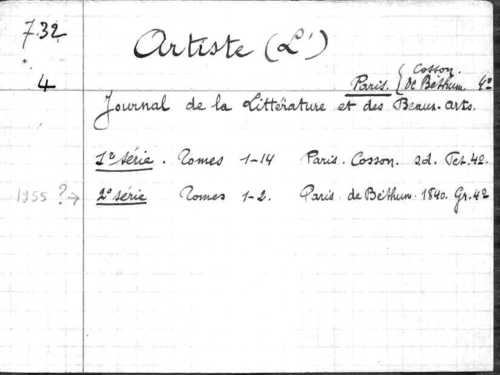 7.32
Artiste (L')
4
Paris. { Cosson.
De Béthun. 4º
Journal de la Littérature et des Beaux-arts.
1e série. Tomes 1-14 Paris. Cosson. Pet. 4º.
1955 ? → 2e série Tomes 1-2. Paris. de Béthun. 1840. Gr. 4º